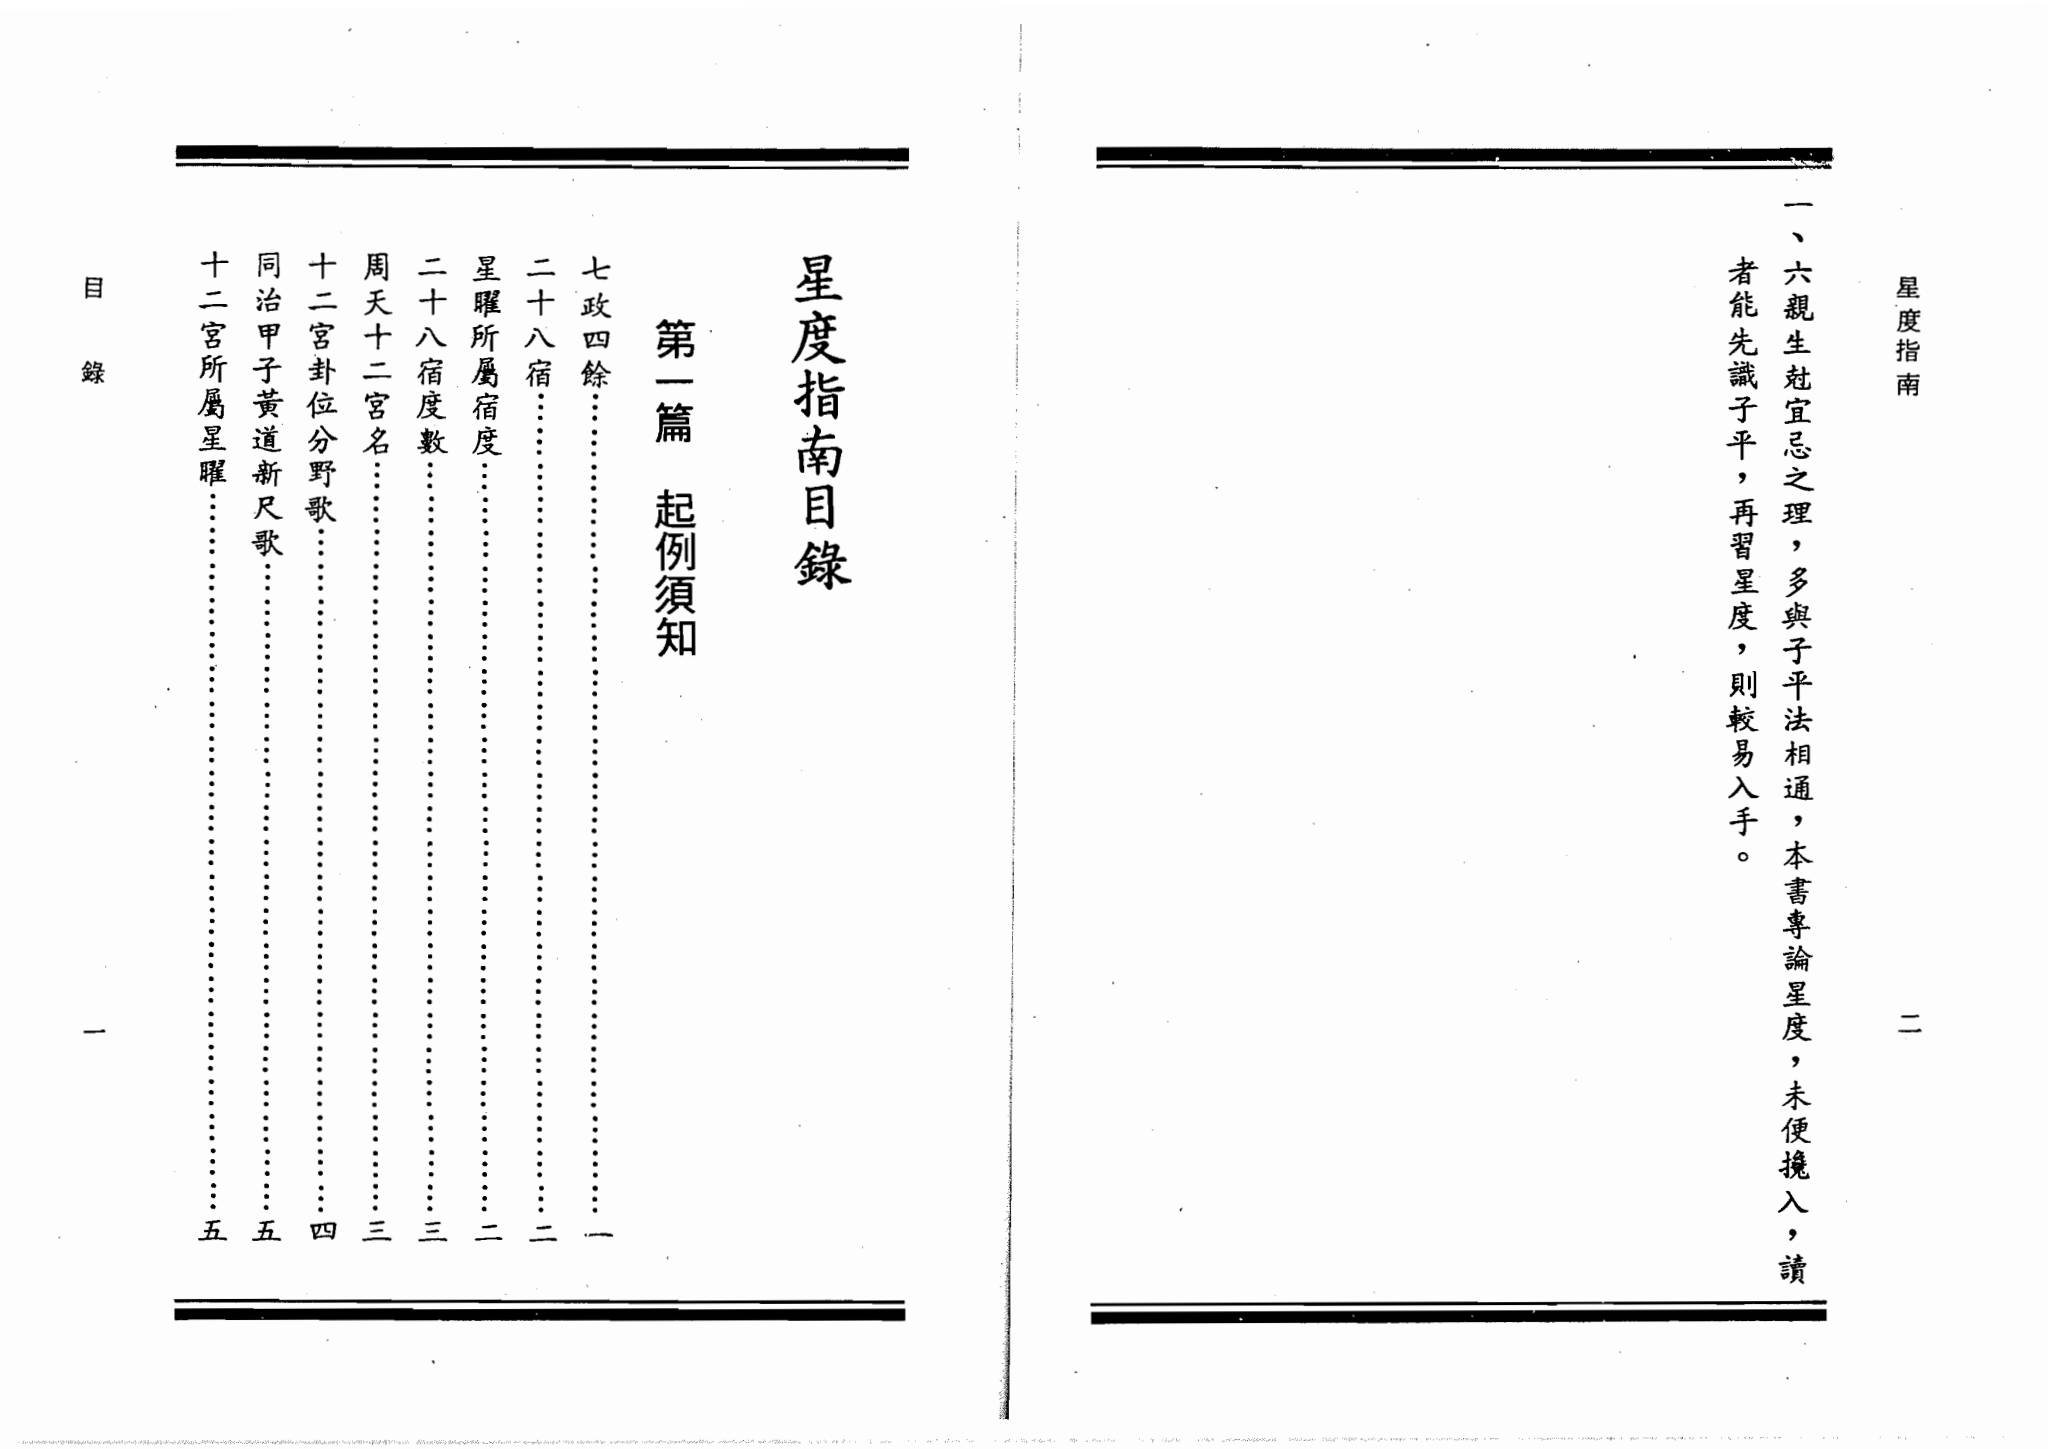 星度指南
二
一、六親生尅宜忌之理，多與子平法相通，本書專論星度，未便攙入，讀
者能先識子平，再習星度，則較易入手。
星度指南目錄
第一篇　起例須知
七政四餘……一
二十八宿……二
星曜所屬宿度……二
二十八宿度數……三
周天十二宮名……三
十二宮卦位分野歌……四
同治甲子黃道新尺歌……五
十二宮所屬星曜……五
目錄
一